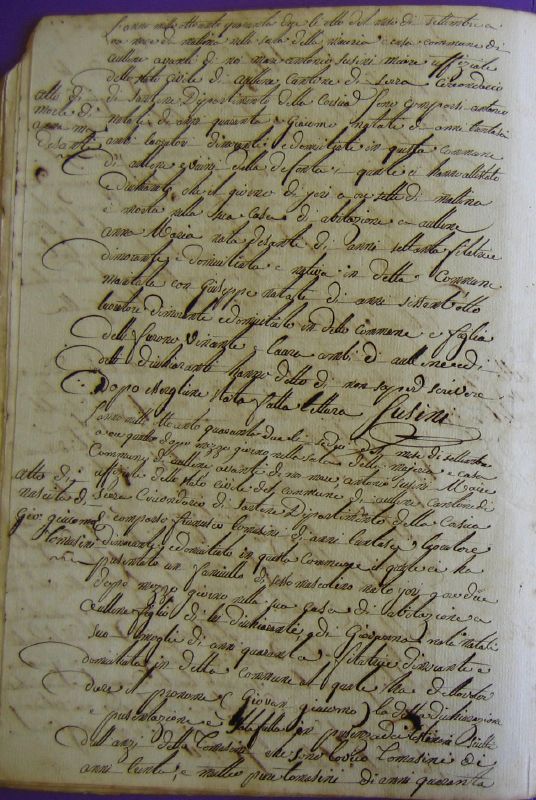 L'anno mille otto cento quaranta due le otto del mese di settembre a
ore nove di mattina nella sala della maeria e casa commune di
aullene avanti di noi marc antonio Susini maire uffiziale
dello stato civile di aullene Cantone di Serra Circondario
di Sartene Dipartimento della Corsica Sono Comparsi antonio
natale di anni quaranta e Giacomo natale di anni trentasei
ambi lavoratori dimoranti e domiciliati in questa commune
di aullene e vicini della defonta i quali ci hanno
dichiarato che il giorno di jeri a ore sette di mattina
è morta nella sua casa di abitazione a aullene
anna Maria nata Desanti di anni settanta filatrice
dimorante e domiciliata e nativa in detta Commune
maritata con Giuseppe natale di anni settant'otto
lavoratore dimorante e domiciliato in detto commune e figlia
delli furono e Laura ambi di aullene ed i
detti dichiaranti hanno detto di non saper scrivere
Dopo avergline stata fatta lettura Susini
atto di
morte di
anna ma
Desanti
L'anno mille otto cento quaranta due li sedici del mese di settembre
a ore quattro dopo mezzo giorno nella sala della maeria e casa
Commune di aullene avanti di noi marc antonio Susini Maire
uffiziale dello stato civile del commune di aullene cantone di
Serra Circondario di Sartene Dipartimento della Corsica
è comparso Francesco Tomasini di anni lavoratore
dimorante e domiciliato in questa commune il quale ci ha
presentato un fanciullo di sesso mascolino nato jeri a ore due
dopo mezzo giorno nella sua casa di abitazione a
aullene figlio di lui dichiarante e di nata natali
sua moglie di anni quaranta filatrice dimorante e
domiciliata in detta commune al quale ha di voler
dare il pronome (Giovan giacomo) la detta dichiarazione
e presentazione è stata fatta in presenza di testimoni
della Tomasini che sono Tomasini di
anni trenta, e matteo Tomasini di anni quaranta
atto di
nascita di
Gio. giacomo
Tomasini